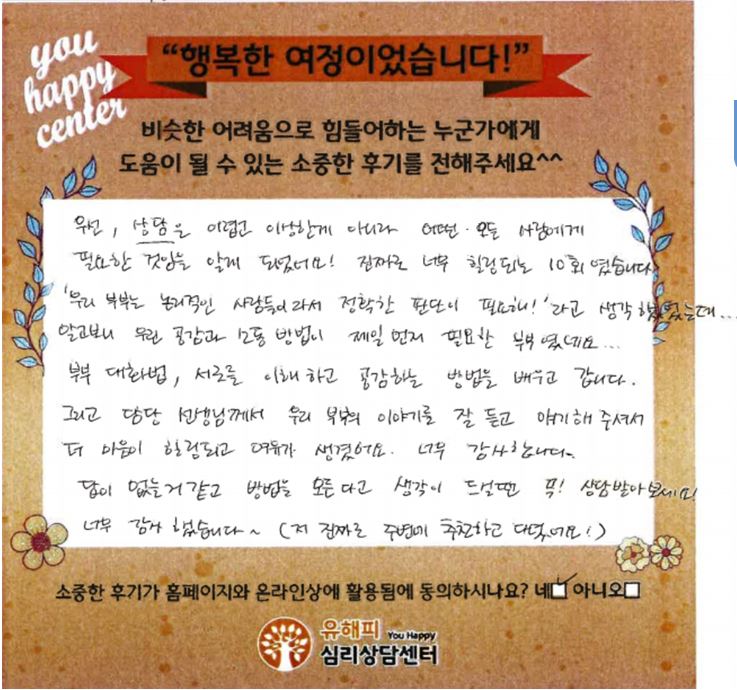 you
happy
center
“행복한 여정이었습니다!”
비슷한 어려움으로 힘들어하는 누군가에게
도움이 될 수 있는 소중한 후기를 전해주세요^^
우선, 상담은 어렵고 이상한게 아니라 어떤·모든 사람에게
필요한 것임을 알게 되었어요! 진짜로 너무 힐링되는 10회 였습니다
'우리 부부는 논리적인 사람들이라서 정확한 판단이 필요해!'라고 생각했었는데...
알고보니 우린 공감과 소통 방법이 제일 먼저 필요한 부부였네요...
부부 대화법, 서로를 이해하고 공감하는 방법을 배우고 갑니다.
그리고 담당 선생님께서 우리 부부의 이야기를 잘 듣고 얘기해 주셔서
더 마음이 힐링되고 여유가 생겼어요. 너무 감사합니다~
답이 없는거 같고 방법을 모른다고 생각이 드실땐 꼭! 상담받아보세요!
너무 감사했습니다~ (저 진짜로 주변에 추천하고 다녔어요!)
소중한 후기가 홈페이지와 온라인상에 활용됨에 동의하시나요? 네 아니오
유해피 You Happy
심리상담센터